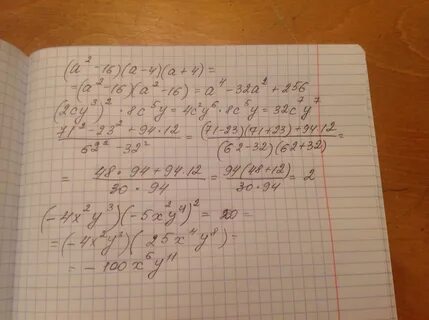 (a² - 16)(a - 4)(a + 4) =
= (a² - 16)(a² - 16) = a⁴ - 32a² + 256
(2cy³)² · 8c⁵y = 4c²y⁶ · 8c⁵y = 32c⁷y⁷
(71² - 23² + 94 · 12) / (62² - 32²) = ((71 - 23)(71 + 23) + 94 · 12) / ((62 - 32)(62 + 32)) =
= (48 · 94 + 94 · 12) / (30 · 94) = (94(48 + 12)) / (30 · 94) = 2
(-4x²y³)(-5x²y⁴)² = 20 =
= (-4x²y³)(25x⁴y⁸) =
= -100x⁶y¹¹